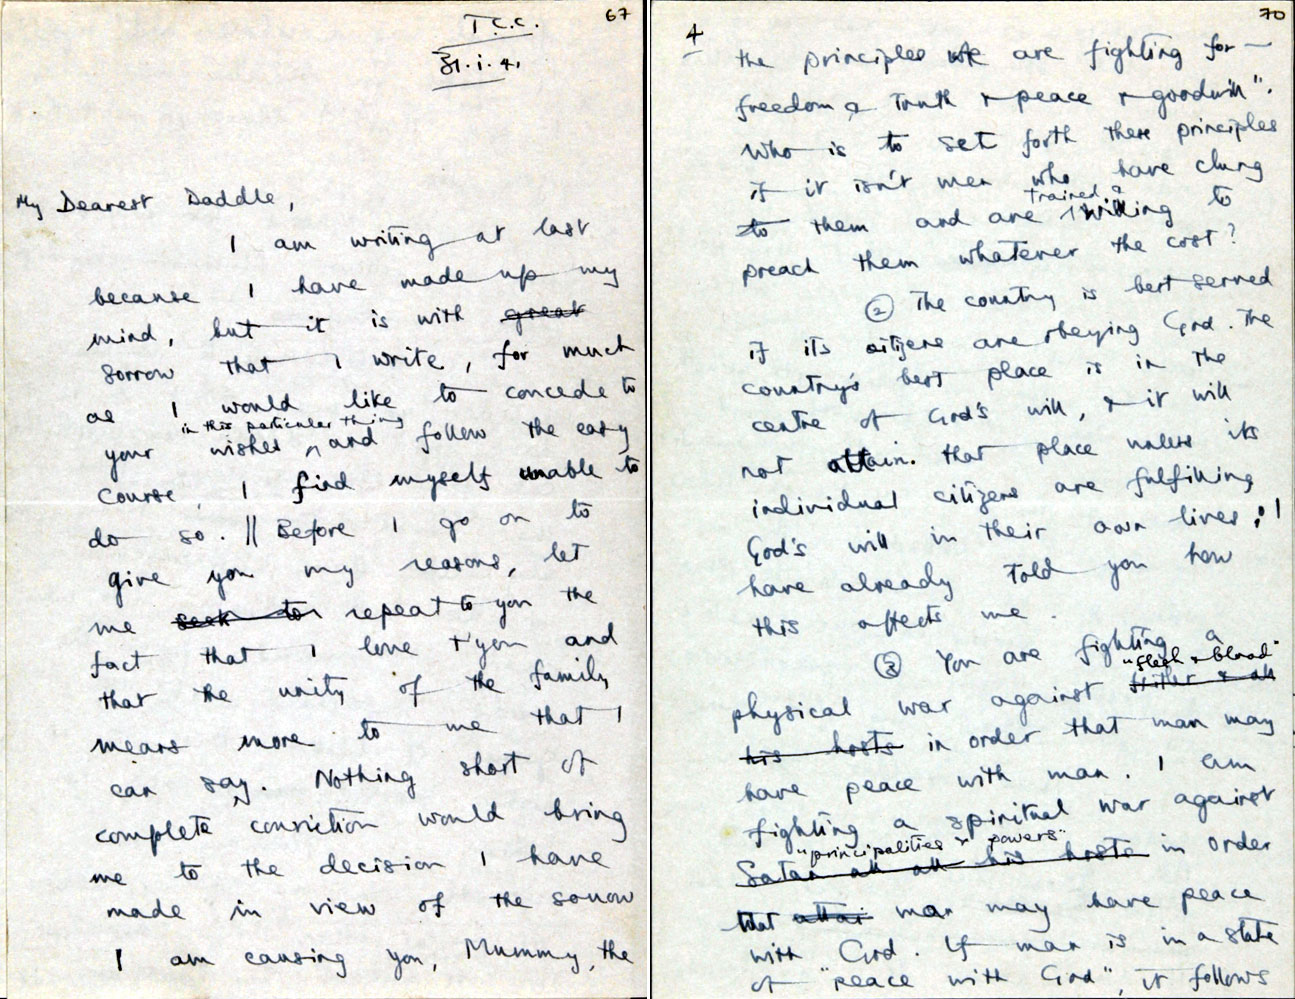 67
T.C.C.
31.i.41
My Dearest Daddle,
I am writing at last
because I have made up my
mind, but it is with great
sorrow that I write, for much
as I would like to concede to
in this particular thing
your wishes, and follow the easy
course I find myself unable to
do so. || Before I go on to
give you my reasons, let
me seek to repeat to you the
fact that I love you and
that the unity of the family
means more to me that I
can say. Nothing short of
complete conviction would bring
me to the decision I have
made in view of the sorrow
I am causing you, Mummy, the
70
4
the principles we are fighting for —
freedom & Truth & peace & goodwill".
Who is to set forth these principles
if it isn't men who have clung
trained &
to them and are willing to
preach them whatever the cost?
② The country is best served
if its citizens are obeying God. The
country's best place is in the
centre of God's will, & it will
not attain that place unless its
individual citizens are fulfilling
God's will in their own lives; I
have already told you how
this affects me.
③ You are fighting a
"flesh & blood"
physical war against Hitler & all
his hosts in order that man may
have peace with man. I am
fighting a spiritual war against
"principalities & powers"
Satan all his hosts in order
that attai man may have peace
with God. If man is in a state
of "peace with God", it follows